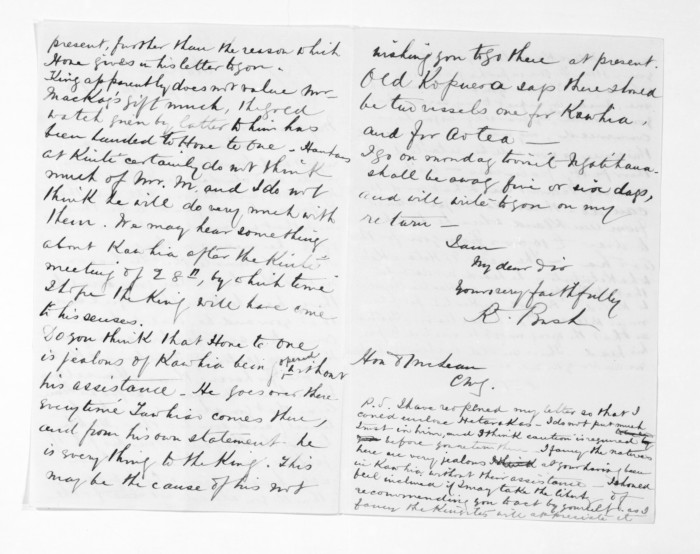 present, further than the reason which
Hone gives in his letter to you.
King apparently does not value Mr.
Mackay's gift much, the gold
watch given by latter to him has
been handed to Hone te One - Hauhaus
at Kuiti certainly do not think
much of Mr. M, and I do not
think he will do very much with
them. We may hear something
about Kawhia after the Kuiti
meeting of 28th, by which time
I hope the King will have come
to his senses.
Do you think that Hone te One
is jealous of Kawhia being opened without
his assistance. He goes over there
everytime Tawhiao comes there,
and from his own statement he
is everything to the King. This
may be the cause of his not
wishing you to go there at present.
Old Kopuera says there should
be two vessels one for Kawhia
and for Aotea —
I go on monday to visit Ngatihaua.
shall be away five or six days,
and will write to you on my
return —
I am
My dear Sir
Yours very faithfully
R. Bush
Hon D McLean
C M G.
P.S. I have reopened my letter so that I
could enclose Hataraka's - I do not put much
trust in him, and I think caution is required
before you return I fancy the natives
here are very jealous at your having been
in Kawhia without their assistance - I should
feel inclined if I may take the liberty of
recommending you to act by yourself, as I
fancy the Kingites will appreciate it